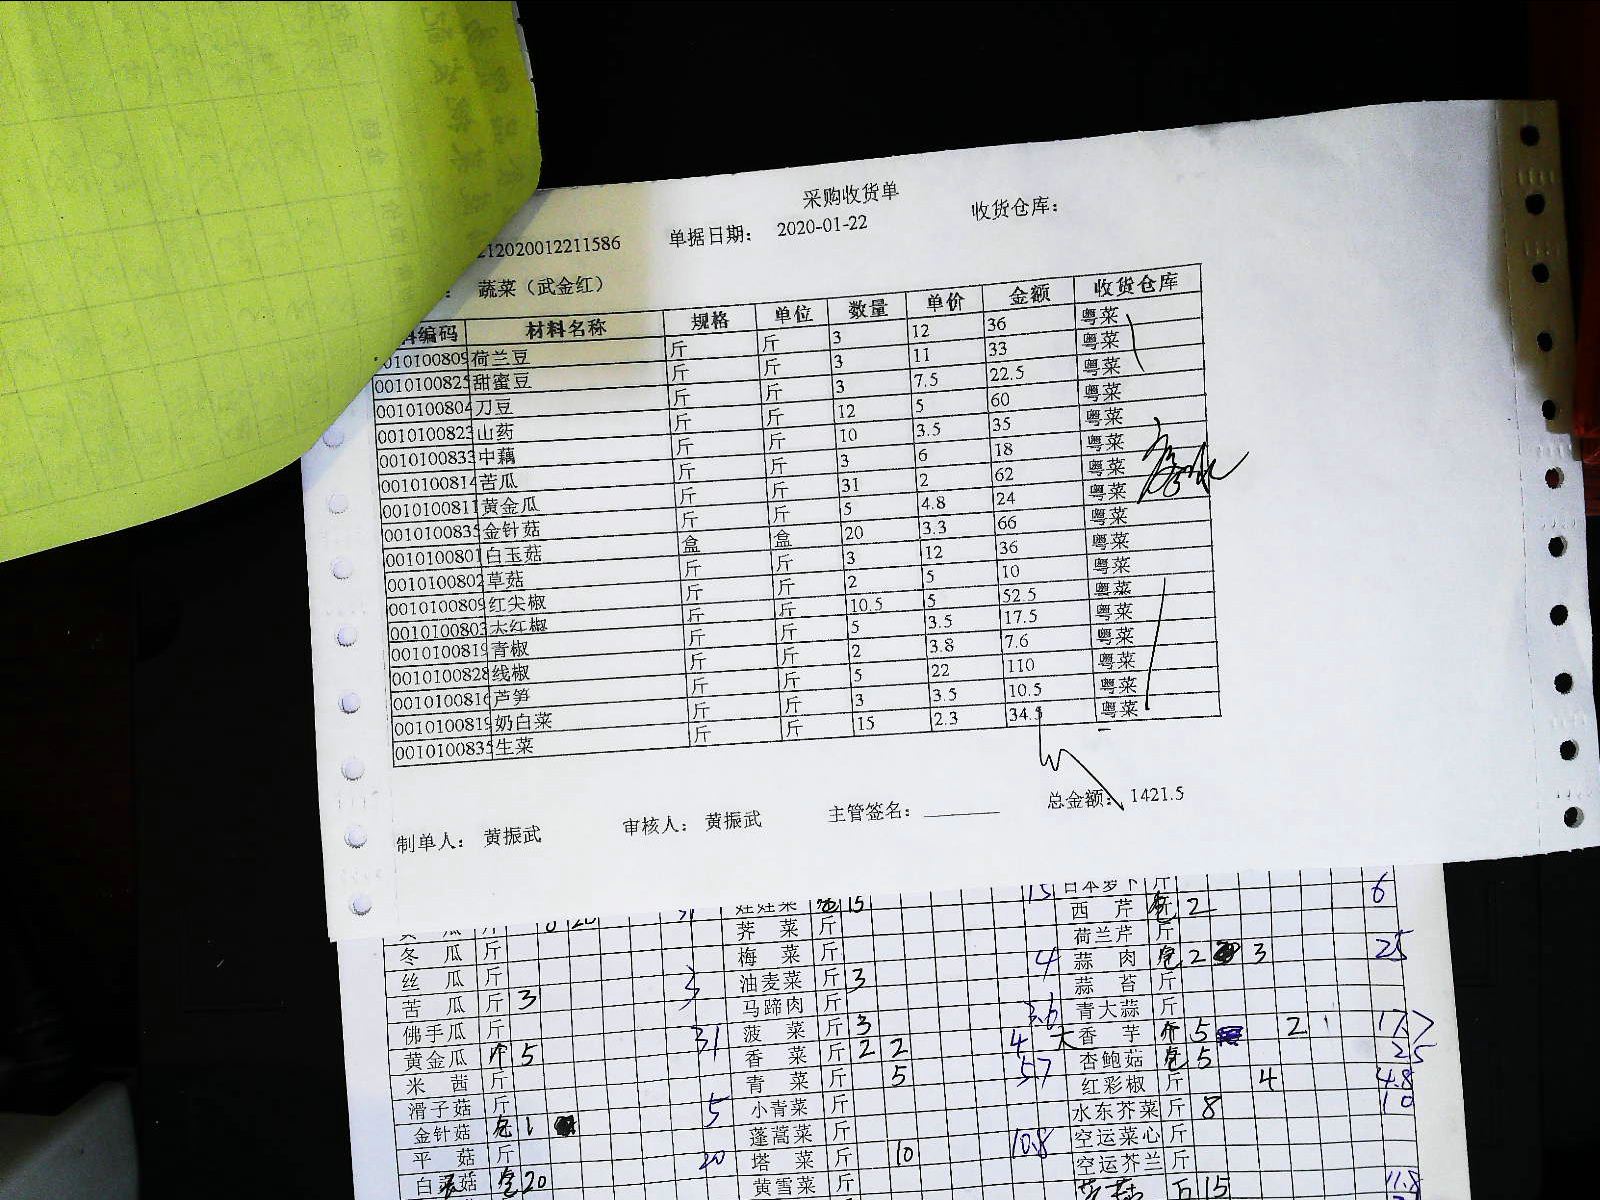 采购收货单
212020012211586 单据日期： 2020-01-22 收货仓库：
： 蔬菜（武金红）
料编码 材料名称 规格 单位 数量 单价 金额 收货仓库
0010100809 荷兰豆 斤 斤 3 12 36 粤菜
0010100825 甜蜜豆 斤 斤 3 11 33 粤菜
0010100804 刀豆 斤 斤 3 7.5 22.5 粤菜
0010100823 山药 斤 斤 12 5 60 粤菜
0010100833 中藕 斤 斤 10 3.5 35 粤菜
0010100814 苦瓜 斤 斤 3 6 18 粤菜
0010100811 黄金瓜 斤 斤 31 2 62 粤菜
0010100835 金针菇 斤 斤 5 4.8 24 粤菜
0010100801 白玉菇 盒 盒 20 3.3 66 粤菜
0010100802 草菇 斤 斤 3 12 36 粤菜
0010100809 红尖椒 斤 斤 2 5 10 粤菜
0010100803 大红椒 斤 斤 10.5 5 52.5 粤菜
0010100819 青椒 斤 斤 5 3.5 17.5 粤菜
0010100828 线椒 斤 斤 2 3.8 7.6 粤菜
0010100816 芦笋 斤 斤 5 22 110 粤菜
0010100819 奶白菜 斤 斤 3 3.5 10.5 粤菜
0010100835 生菜 斤 斤 15 2.3 34.5 粤菜
制单人： 黄振武 审核人： 黄振武 主管签名： 总金额： 1421.5
31 娃娃菜 15 15 日本萝卜 斤
瓜 斤 荠菜 斤 西芹 2 6
冬瓜 斤 梅菜 斤 荷兰芹 斤
丝瓜 斤 油麦菜 斤 3 4 蒜肉 包 2 3 25
苦瓜 斤 3 3 马蹄肉 斤 蒜苔 斤
佛手瓜 斤 菠菜 斤 3 3.6 青大蒜 斤
黄金瓜 个 5 31 香菜 斤 2 2 4 大香芋 个 5 2 17.7
米茜 斤 青菜 斤 5 5.7 杏鲍菇 包 5 25
滑子菇 斤 5 小青菜 斤 红彩椒 斤 4 4.8
金针菇 包 1 蓬蒿菜 斤 水东芥菜 斤 8 10
平菇 斤 20 塔菜 斤 10 10.8 空运菜心 斤
白菇 包 20 黄雪菜 斤 空运芥兰 斤
15 11.8